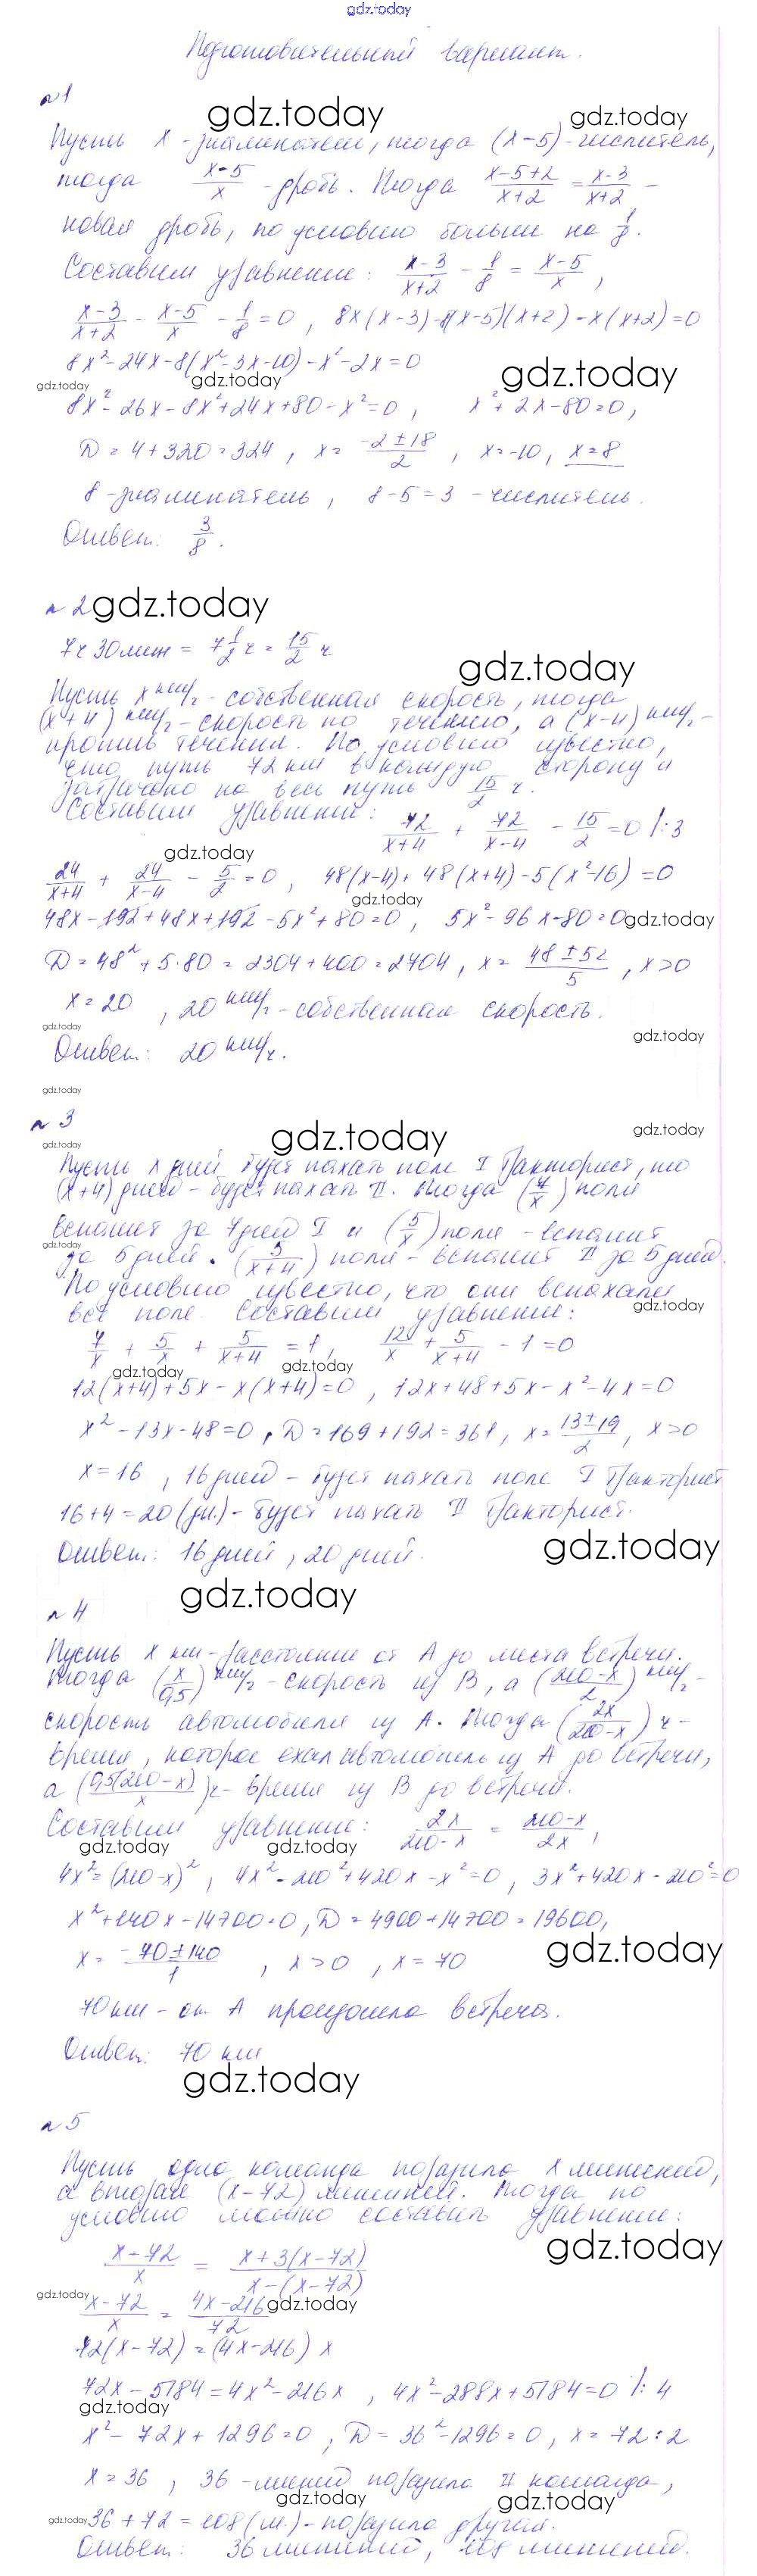 gdz.today
Подготовительный вариант.
№1
gdz.today gdz.today
Пусть x - знаменатель, тогда (x-5) - числитель,
тогда (x-5)/x - дробь. Тогда (x-5+2)/(x+2) = (x-3)/(x+2) -
новая дробь, по условию больше на 1/8.
Составим уравнение: (x-3)/(x+2) - 1/8 = (x-5)/x,
(x-3)/(x+2) - (x-5)/x - 1/8 = 0, 8x(x-3)-8(x-5)(x+2)-x(x+2)=0
8x²-24x-8(x²-3x-10)-x²-2x=0
gdz.today gdz.today gdz.today
8x²-26x-8x²+24x+80-x²=0, x²+2x-80=0,
D=4+320=324, x=(-2±18)/2, x=-10, x=8
8-знаменатель, 8-5=3 - числитель.
Ответ: 3/8.
№2 gdz.today
7ч 30мин = 7 1/2 ч = 15/2 ч
gdz.today
Пусть x км/ч - собственная скорость, тогда
(x+4) км/ч - скорость по течению, а (x-4) км/ч -
против течения. По условию известно,
что путь 72 км в каждую сторону и
затрачено на весь путь 15/2 ч.
Составим уравнение: 72/(x+4) + 72/(x-4) - 15/2 = 0 |:3
gdz.today
24/(x+4) + 24/(x-4) - 5/2 = 0, 48(x-4)+48(x+4)-5(x²-16)=0
gdz.today
48x-192+48x+192-5x²+80=0, 5x²-96x-80=0 gdz.today
D=48²+5·80=2304+400=2704, x=(48±52)/5, x>0
x=20, 20 км/ч - собственная скорость.
gdz.today gdz.today
Ответ: 20 км/ч.
gdz.today
№3
gdz.today gdz.today gdz.today
Пусть x дней будет пахать поле I тракторист, то
(x+4) дней - будет пахать II. Тогда (7/x) поля
вспашет за 7 дней I и (5/x) поля - вспашет
gdz.today
за 5 дней. (5/(x+4)) поля - вспашет II за 5 дней.
По условию известно, что они вспахали
gdz.today
всё поле. Составим уравнение:
7/x + 5/x + 5/(x+4) = 1, 12/x + 5/(x+4) - 1 = 0
gdz.today gdz.today
12(x+4)+5x-x(x+4)=0, 12x+48+5x-x²-4x=0
x²-13x-48=0, D=169+192=361, x=(13±19)/2, x>0
x=16, 16 дней - будет пахать поле I тракторист
16+4=20(дн.) - будет пахать II тракторист.
Ответ: 16 дней, 20 дней.
gdz.today
gdz.today
№4
Пусть x км - расстояние от A до места встречи.
Тогда (x/0,5) км/ч - скорость из B, а ((210-x)/2) км/ч -
скорость автомобиля из A. Тогда (2x/(210-x)) ч -
время, которое ехал автомобиль из A до встречи,
а (0,5(210-x)/x) ч - время из B до встречи.
Составим уравнение: 2x/(210-x) = (210-x)/2x,
gdz.today gdz.today
4x²=(210-x)², 4x²-210²+420x-x²=0, 3x²+420x-210²=0
x²+140x-14700=0, D=4900+14700=19600,
x=(-70±140)/1, x>0, x=70
gdz.today
70 км - от A произошла встреча.
Ответ: 70 км
gdz.today
№5
Пусть одна команда поразила x мишеней,
а вторая (x-72) мишеней. Тогда по
условию можно составить уравнение:
(x-72)/x = (x+3(x-72))/(x-(x-72))
gdz.today
gdz.today (x-72)/x = (4x-216)/72 gdz.today
72(x-72)=(4x-216)x
72x-5184=4x²-216x, 4x²-288x+5184=0 |:4
gdz.today
x²-72x+1296=0, D=36²-1296=0, x=72:2
x=36, 36-мишеней поразила II команда,
gdz.today gdz.today
gdz.today 36+72=108(м.) - поразила другая.
Ответ: 36 мишеней, 108 мишеней.